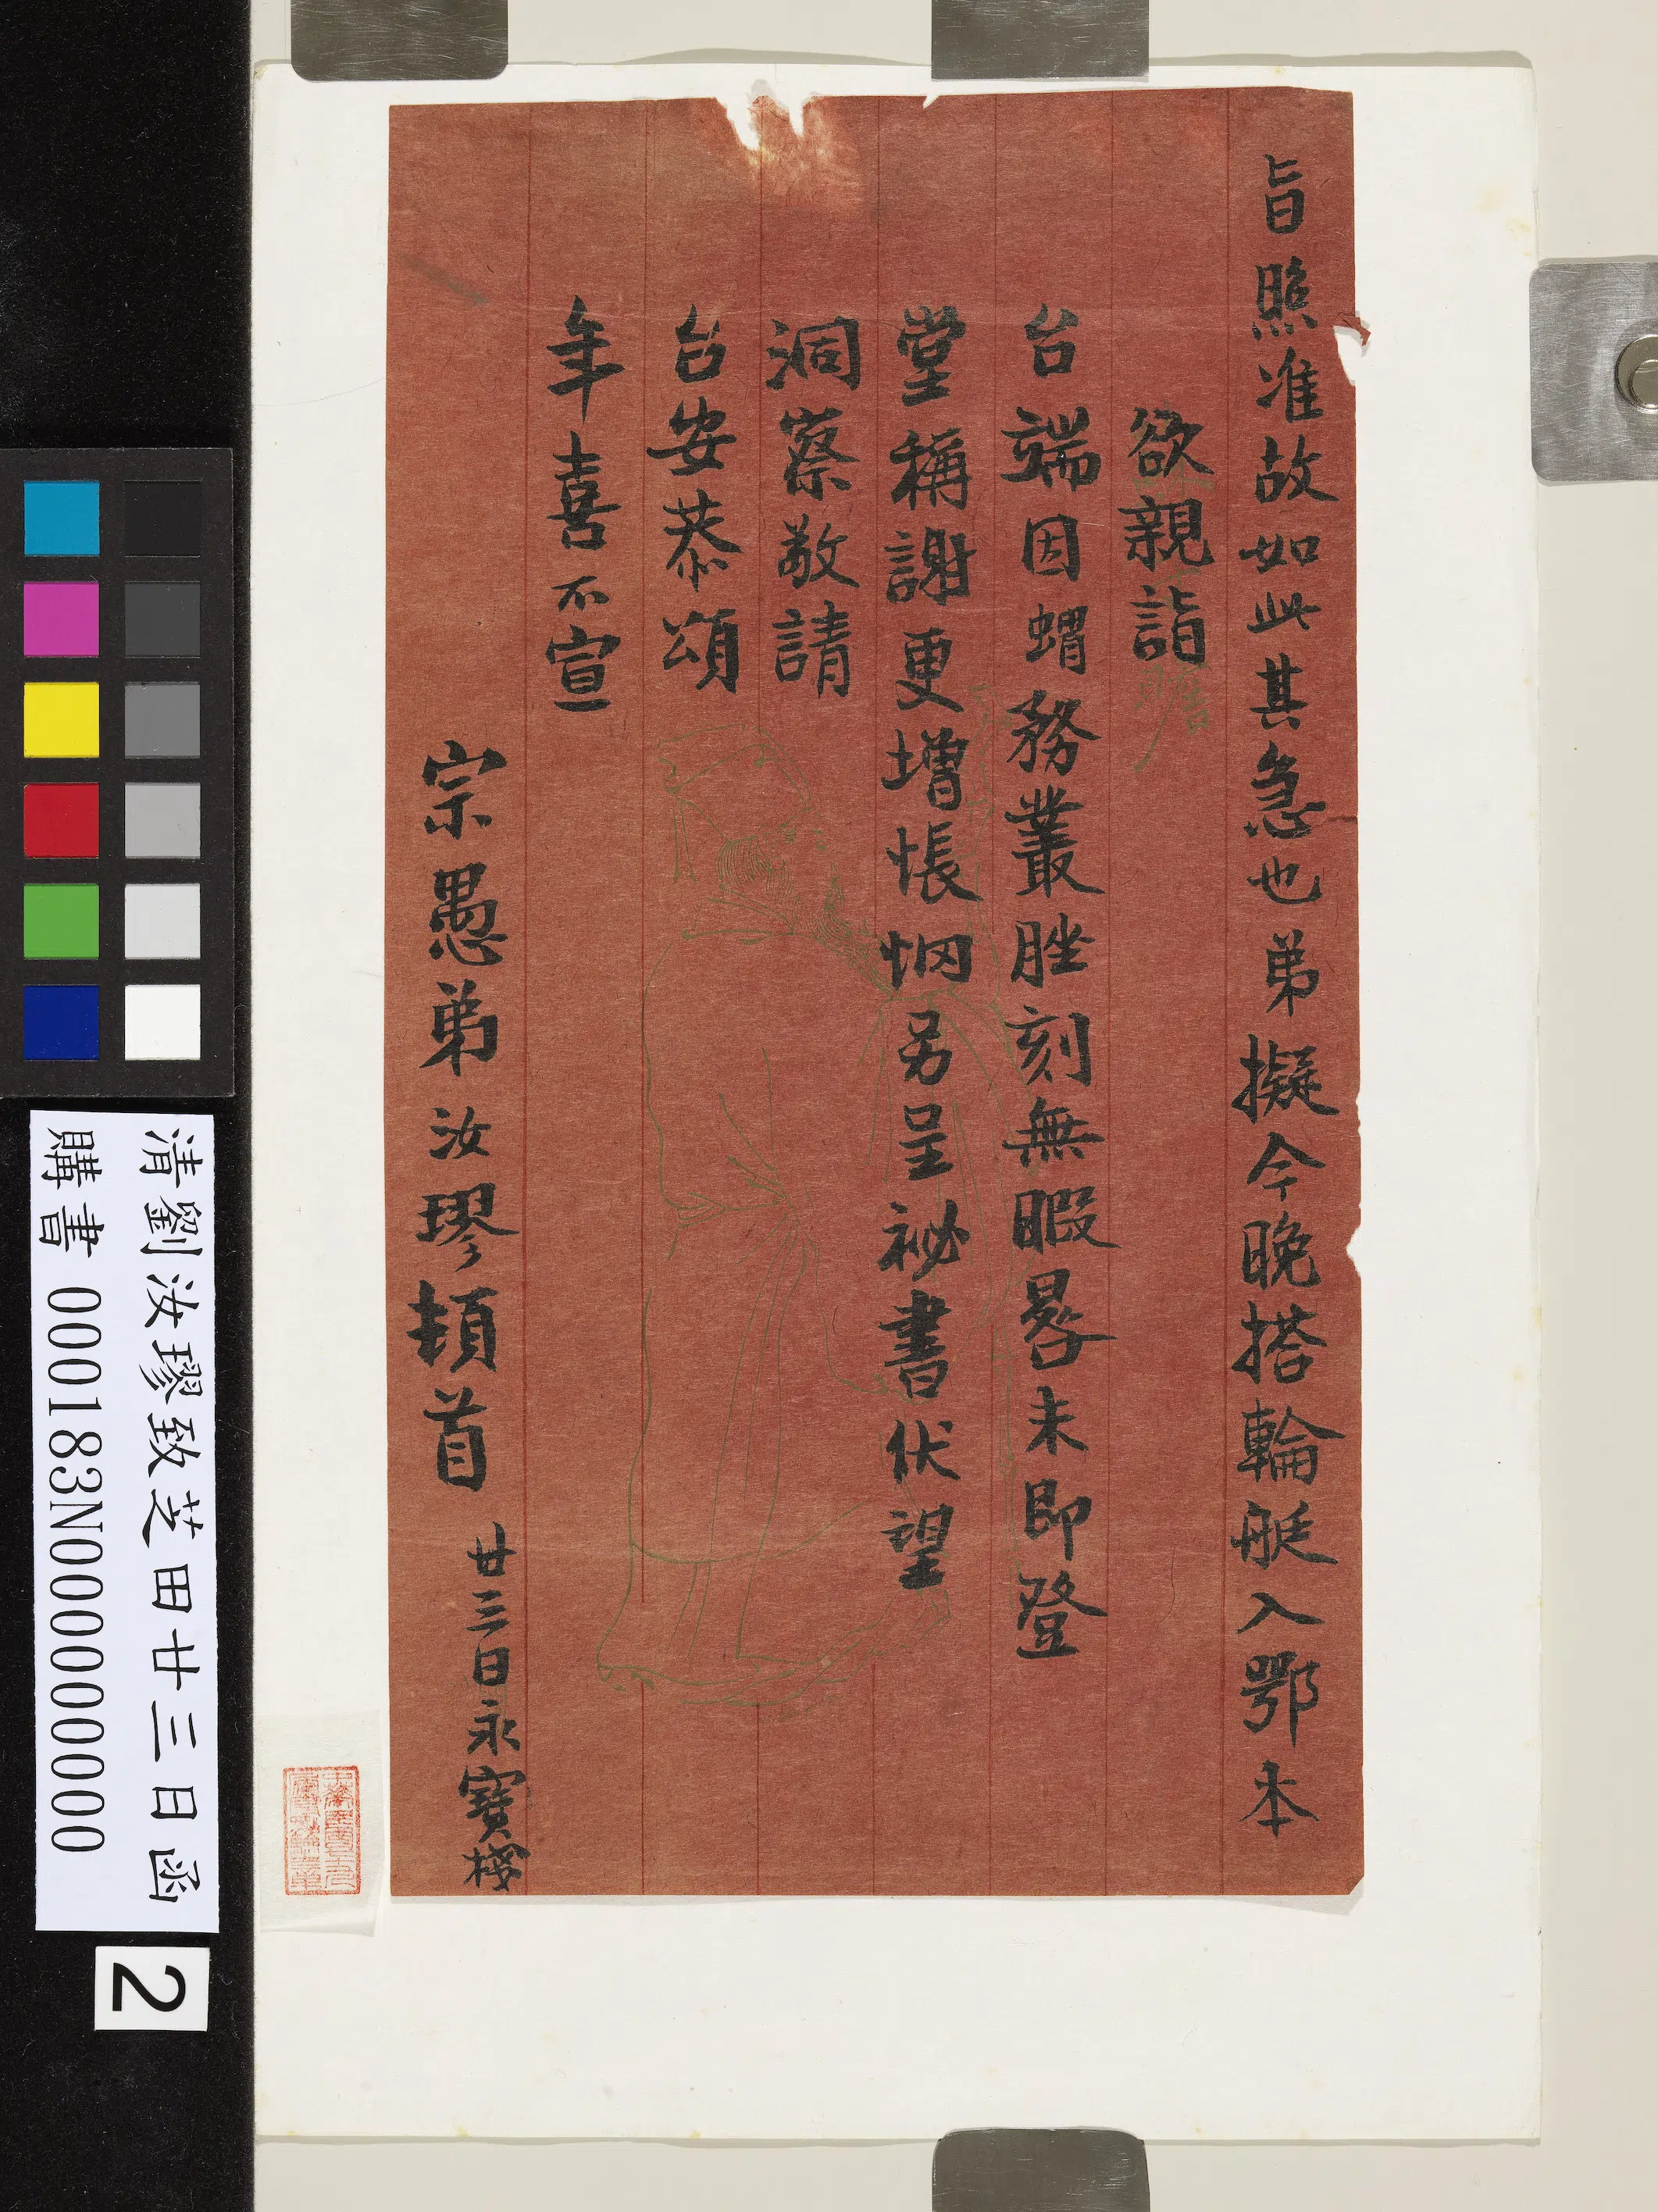 旨照准故如此其急也弟擬今晚搭輪艇入鄂本
欲親詣
台端因蝟務叢脞刻無暇晷未即登
堂稱謝更增悵惘另呈祕書伏望
洞察敬請
台安恭頌
年喜不宣
宗愚弟汝璆頓首
廿三日永寶棧
清劉汝璆致芝田廿三日函
購書 000183N000000000
2